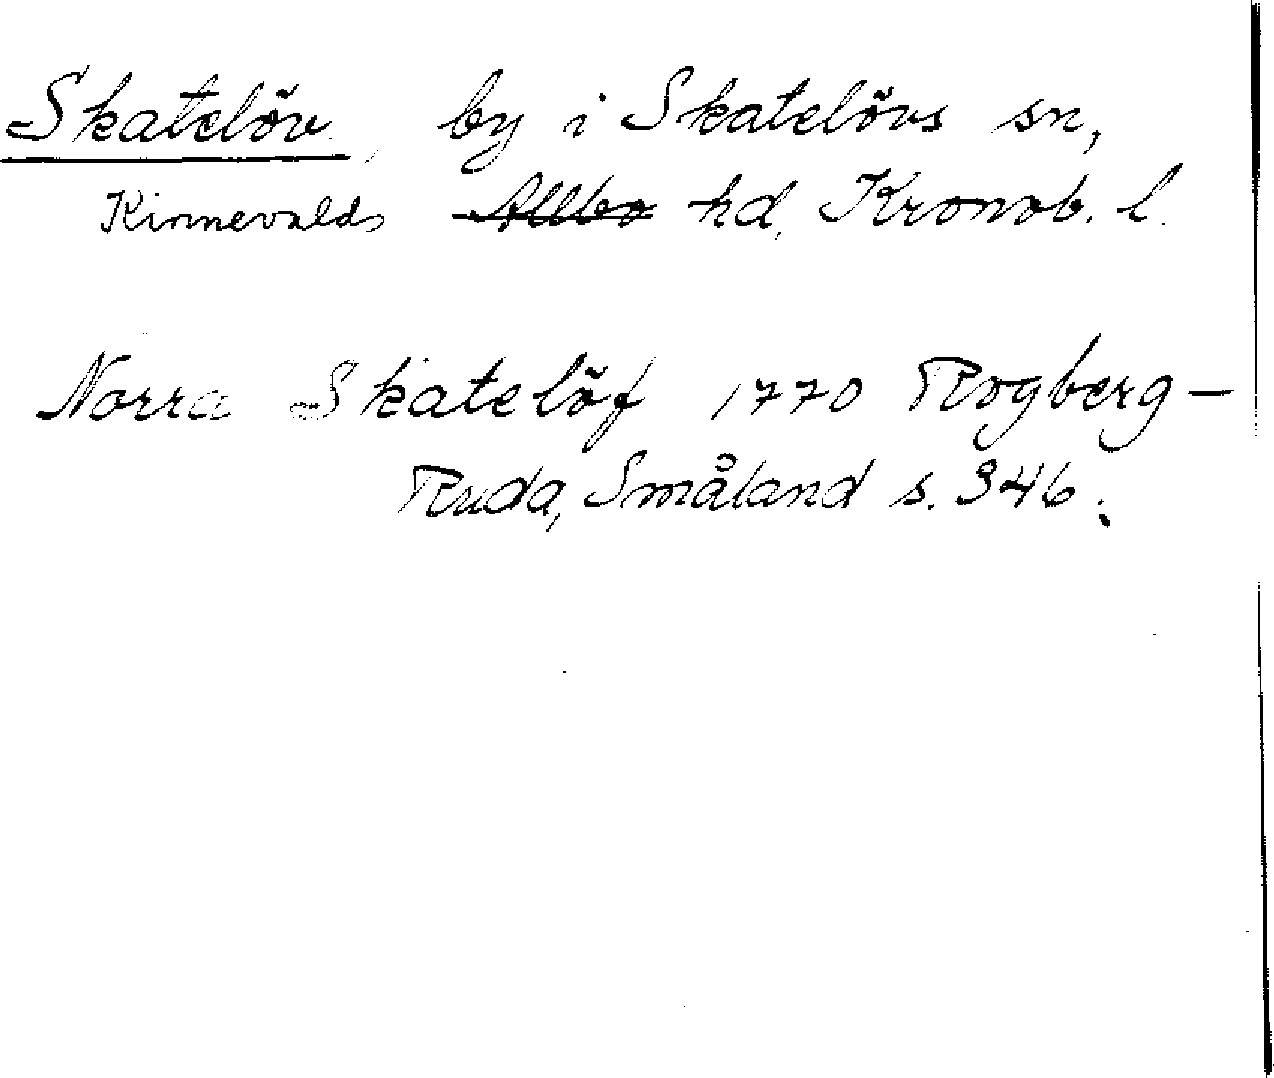 Skatelöv, by i Skatelövs sn,
Kinnevalds Allbo hd, Kronob. l.
Norra Skatelöf 1770 Rogberg-
Ruda, Småland s. 346.